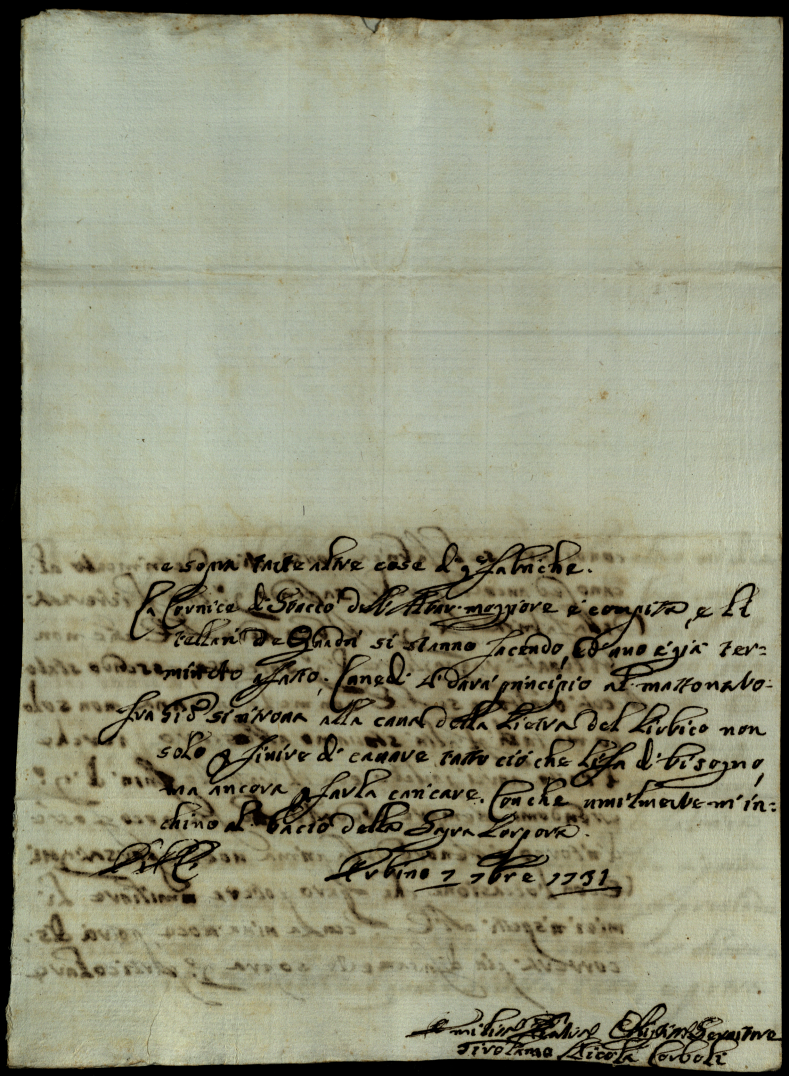 e sopra tutte altre cose di qe. fabriche.
La Cornice di Stucco dell'Altar maggiore è compita, e li
tellari de Quadri si stanno facendo, ed uno è già ter-
minato affatto. Lunedì si darà principio al mattonato.
Fra Sisto si trova alla cava della Pietra del Furbico non
solo p finire di cavare tutto ciò che li fa di bisogno,
ma ancora p farla caricare. Con che umilmente m'in-
chino al bacio della Sagra Porpora.
Urbino 7 7bre 1731
Umiliss. Servitore
Girolamo Nicola Corboli